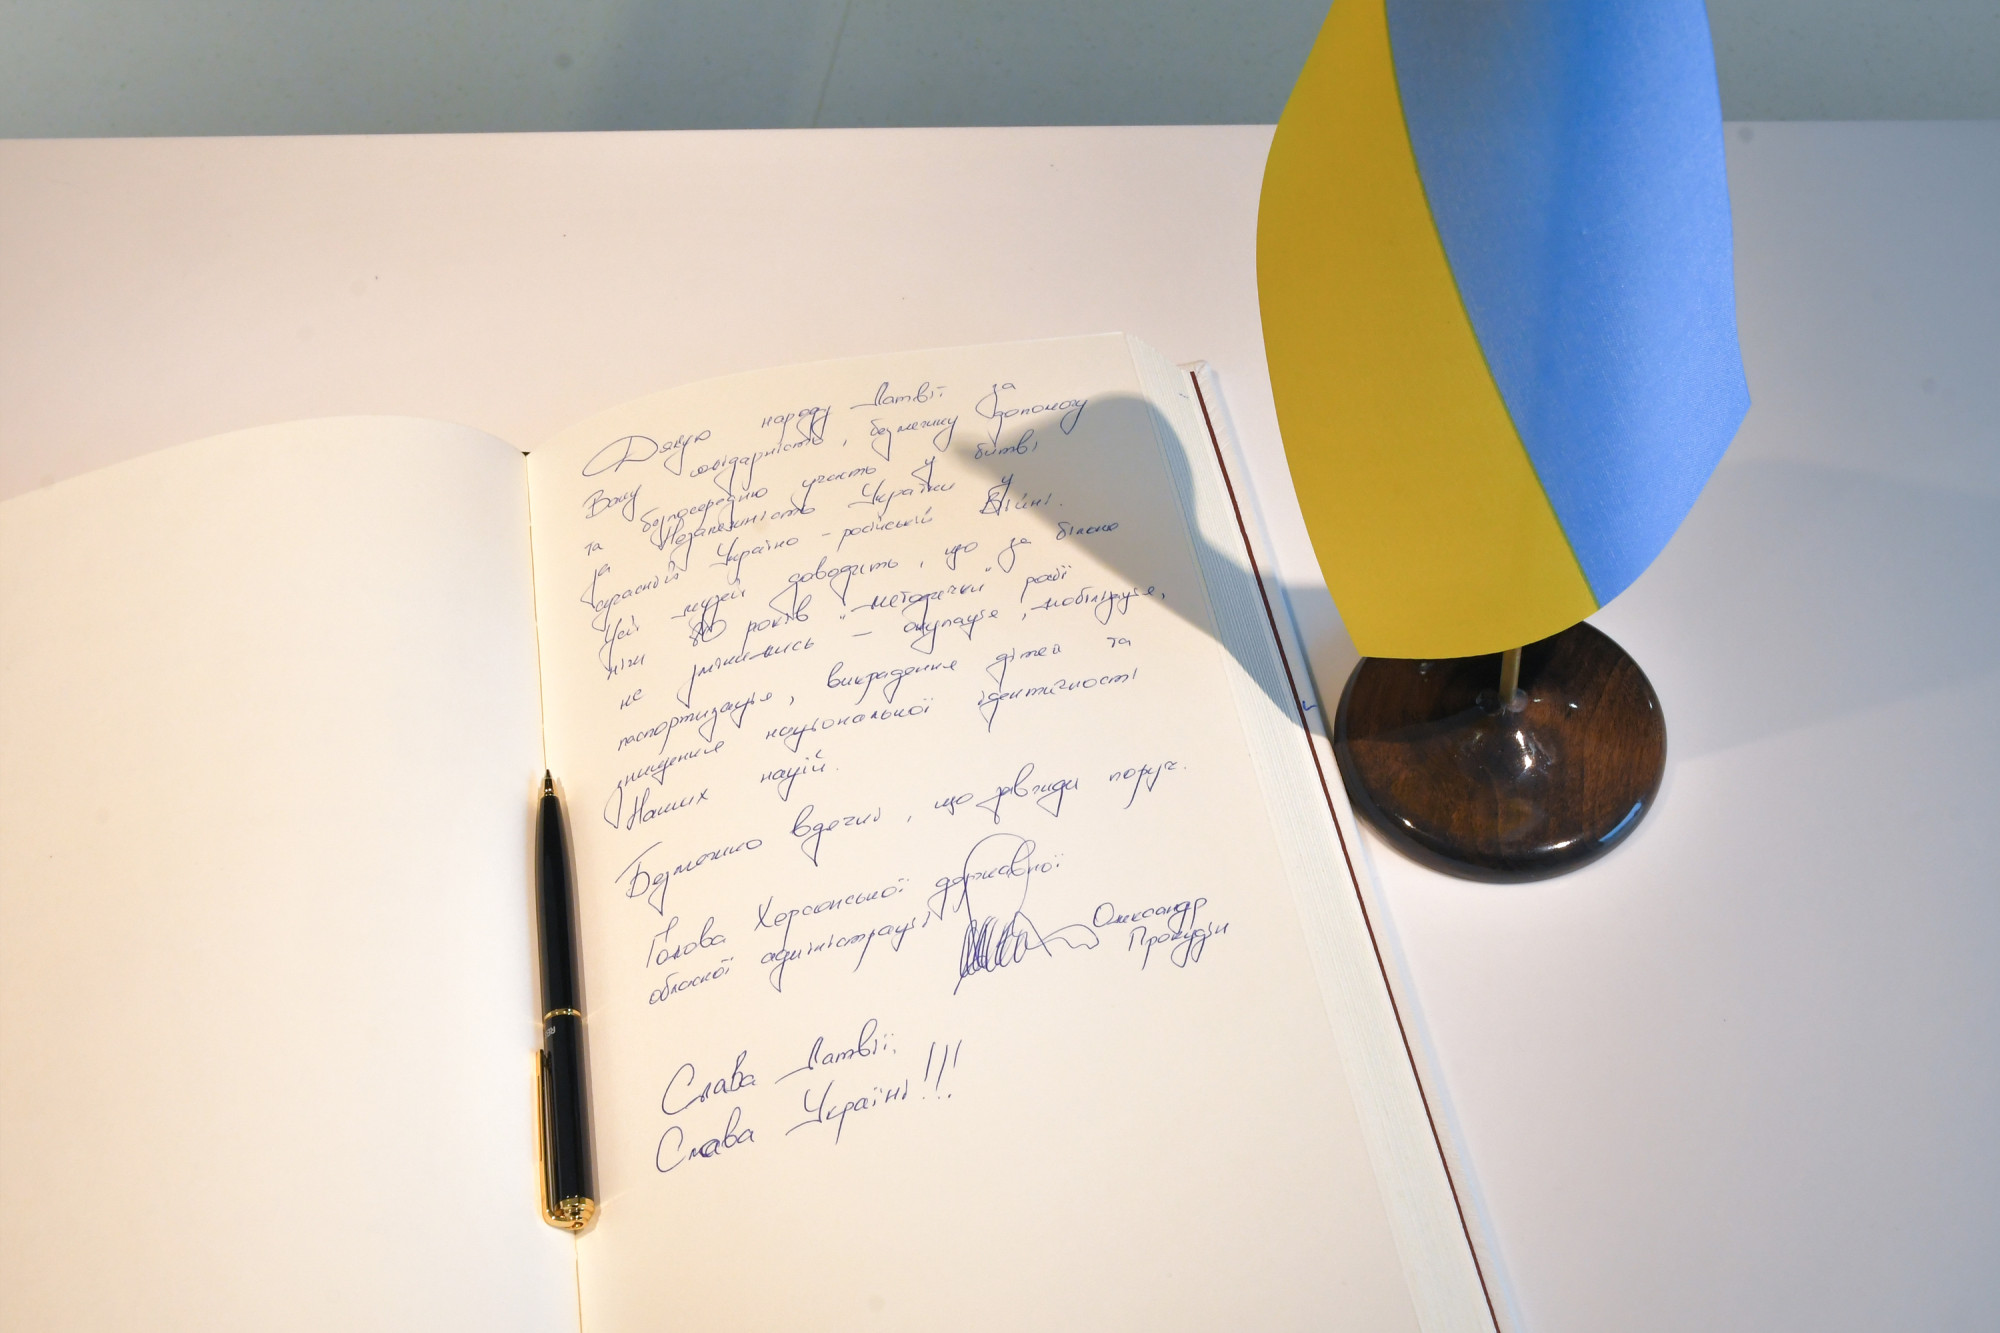 Дякую народу Латвії за
Вашу солідарність, безмежну допомогу
та безпосередню участь у битві
за Незалежність України у
сучасній Україно - російській Війні.
Цей музей доводить, що за більше
ніж 80 років "методички" росії
не змінились - окупація, мобілізація,
паспортизація, викрадення дітей та
знищення національної ідентичності
Наших націй.
Безмежно вдячні, що завжди поруч.
Голова Херсонської державної
обласної адміністрації Олександр
Прокудін
Слава Латвії,
Слава Україні!!!